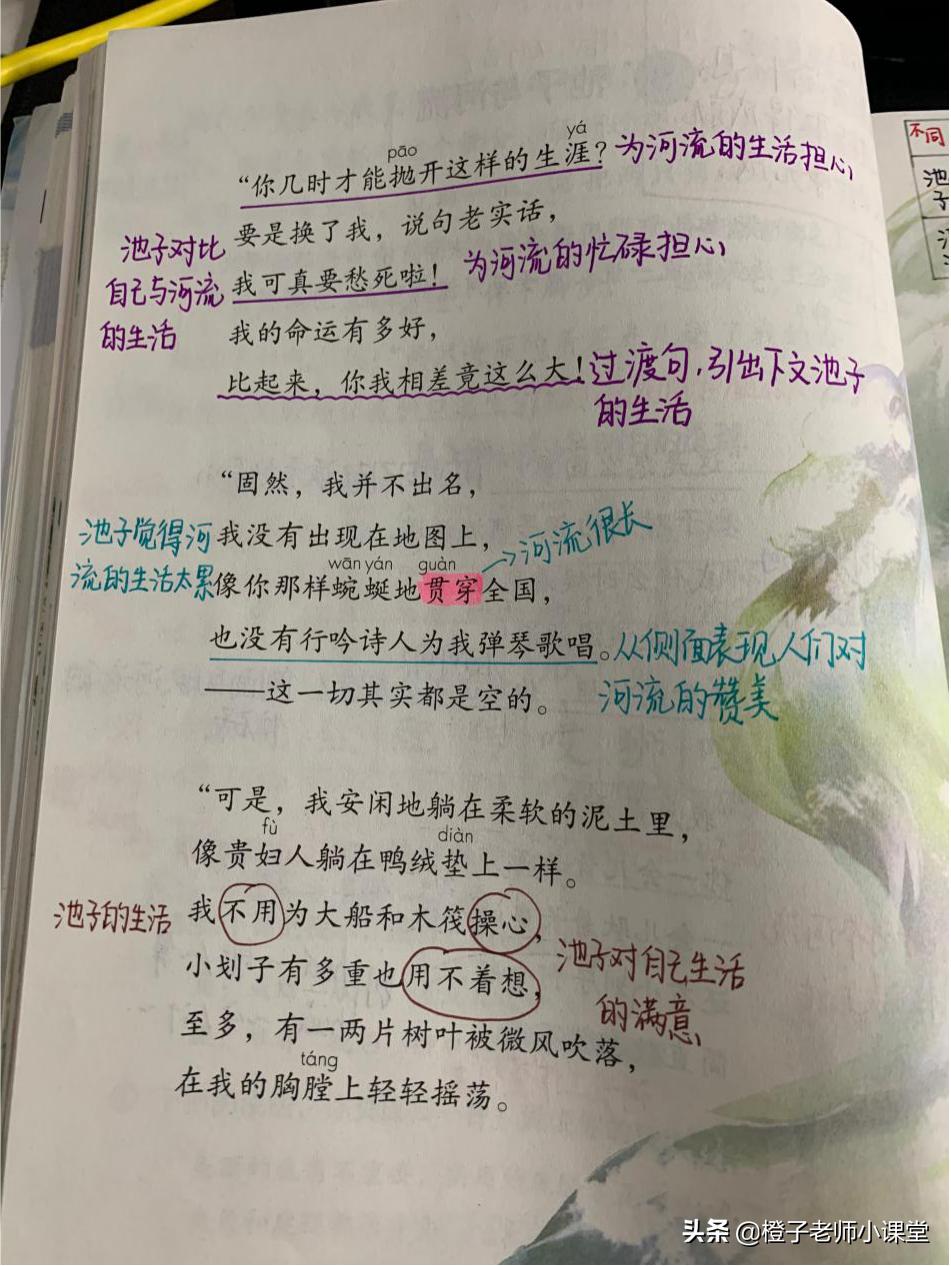 pāo yá
“你几时才能抛开这样的生涯？为河流的生活担心
要是换了我，说句老实话，
池子对比
自己与河流
的生活
我可真要愁死啦！为河流的忙碌担心
我的命运有多好，
比起来，你我相差竟这么大！过渡句，引出下文池子
的生活
“固然，我并不出名，
池子觉得河
流的生活太累
我没有出现在地图上，
wān yán guàn
像你那样蜿蜒地贯穿全国，
→河流很长
也没有行吟诗人为我弹琴歌唱。从侧面表现人们对
河流的赞美
——这一切其实都是空的。
“可是，我安闲地躺在柔软的泥土里，
fù diàn
像贵妇人躺在鸭绒垫上一样。
池子的生活
我不用为大船和木筏操心，
小划子有多重也用不着想，
池子对自己生活
的满意
至多，有一两片树叶被微风吹落，
táng
在我的胸膛上轻轻摇荡。
不同
池
子
头条 @橙子老师小课堂